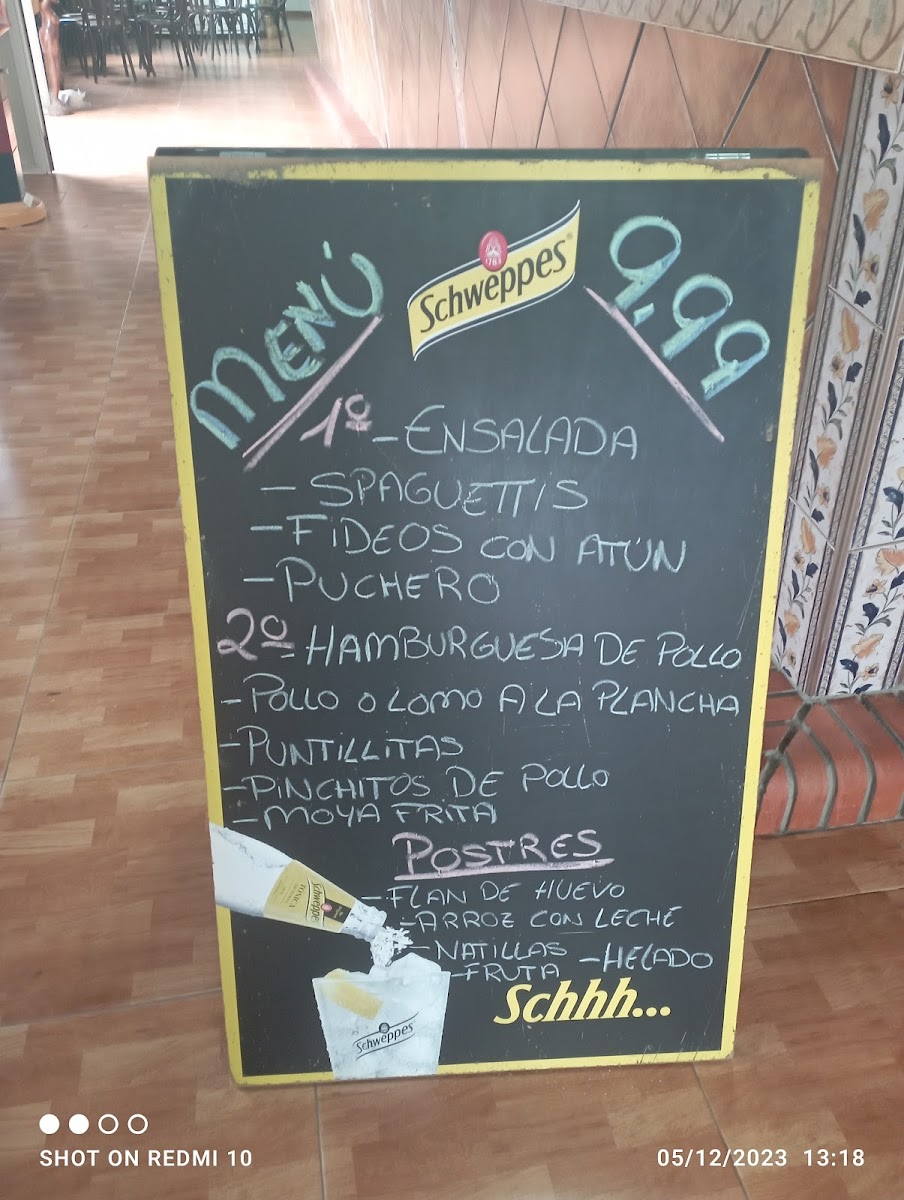 MENÚ
Schweppes
1783
9.99
1º - ENSALADA
- SPAGUETTIS
- FIDEOS CON ATÚN
- PUCHERO
2º - HAMBURGUESA DE POLLO
- POLLO O LOMO A LA PLANCHA
- PUNTILLITAS
- PINCHITOS DE POLLO
- MOYA FRITA
POSTRES
- FLAN DE HUEVO
- ARROZ CON LECHE
- NATILLAS - HELADO
- FRUTA
Schhh...
Schweppes
TONICA
Schweppes
SHOT ON REDMI 10
05/12/2023 13:18